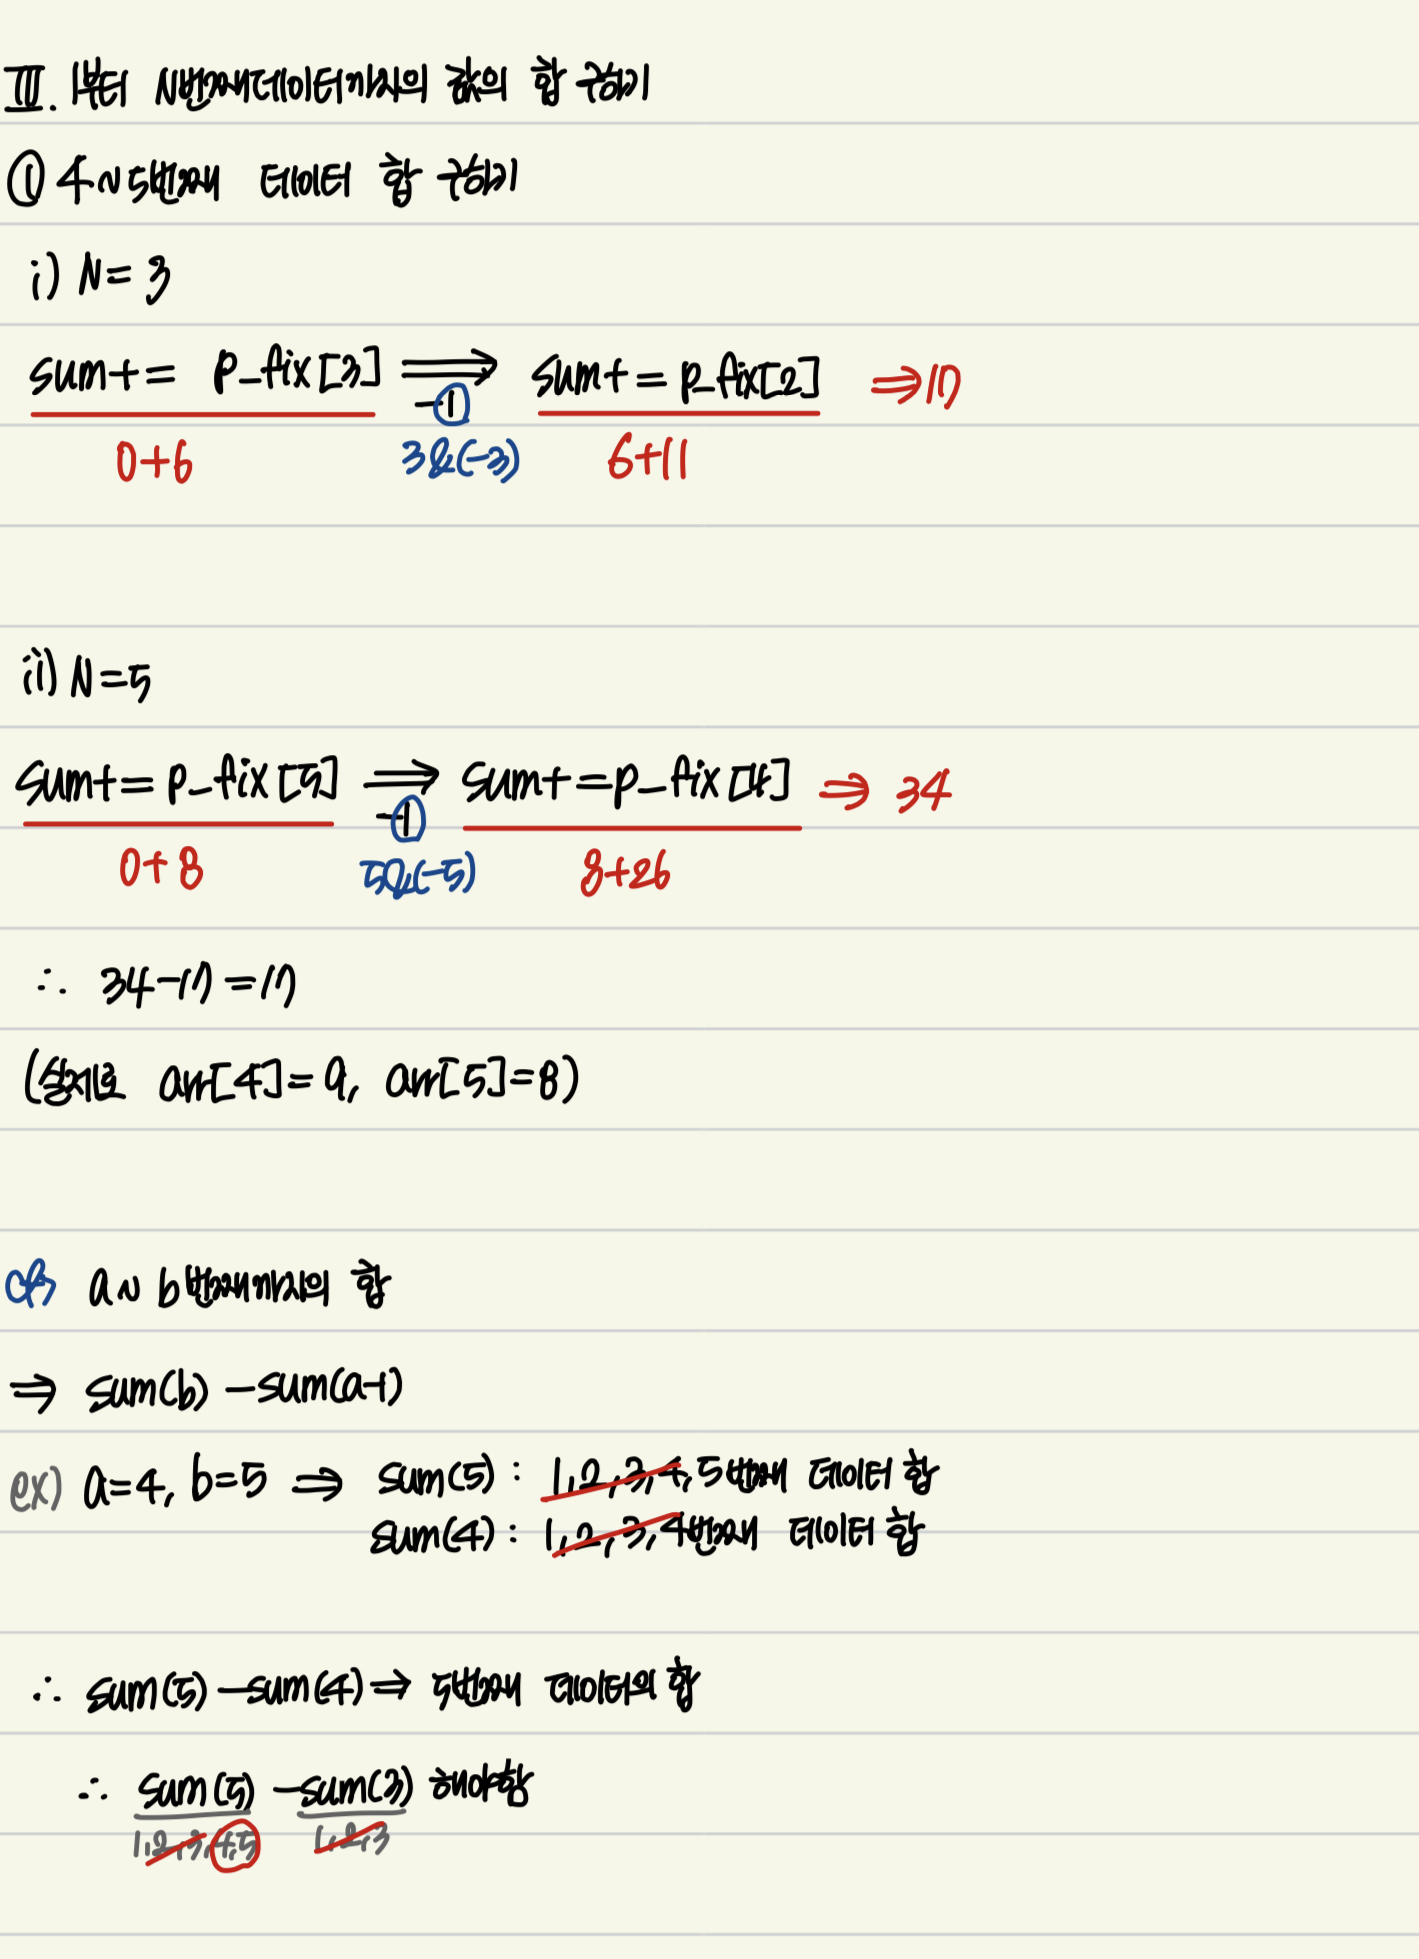 III. 1부터 N번째데이터까지의 값의 합 구하기
① 4~5번째 데이터 합 구하기
i) N= 3
sum+= p_fix[3] ⟹ sum+=p_fix[2] ⇒17
-1
0+6 3&(-3) 6+11
ii) N=5
sum+=p_fix[5] ⟹ sum+=p_fix[4] ⇒ 34
-1
0+8 5&(-5) 8+26
∴ 34-17=17
(실제로 arr[4]=9, arr[5]=8)
cf> a~b번째까지의 합
⇒ sum(b)-sum(a-1)
ex) a=4, b=5 ⇒ sum(5) : 1,2,3,4,5번째 데이터 합
sum(4) : 1,2,3,4번째 데이터 합
∴ sum(5)-sum(4)⇒ 5번째 데이터의 합
∴ sum(5)-sum(3) 해야함
1,2,3,4,5 1,2,3